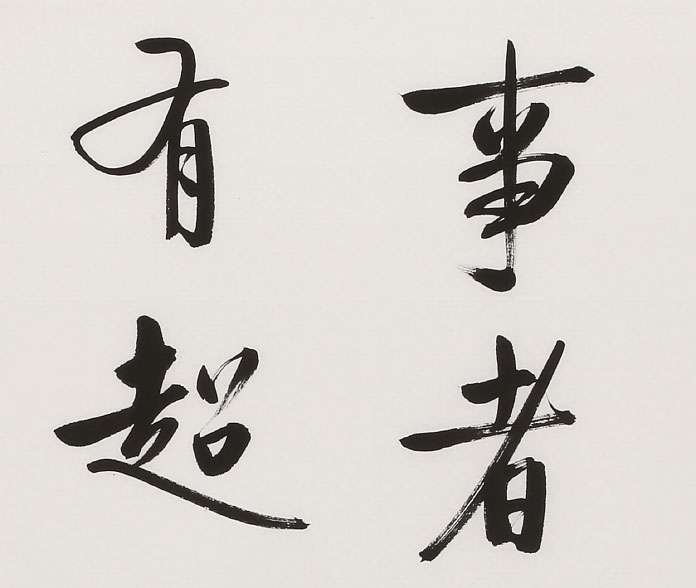 事者
有超